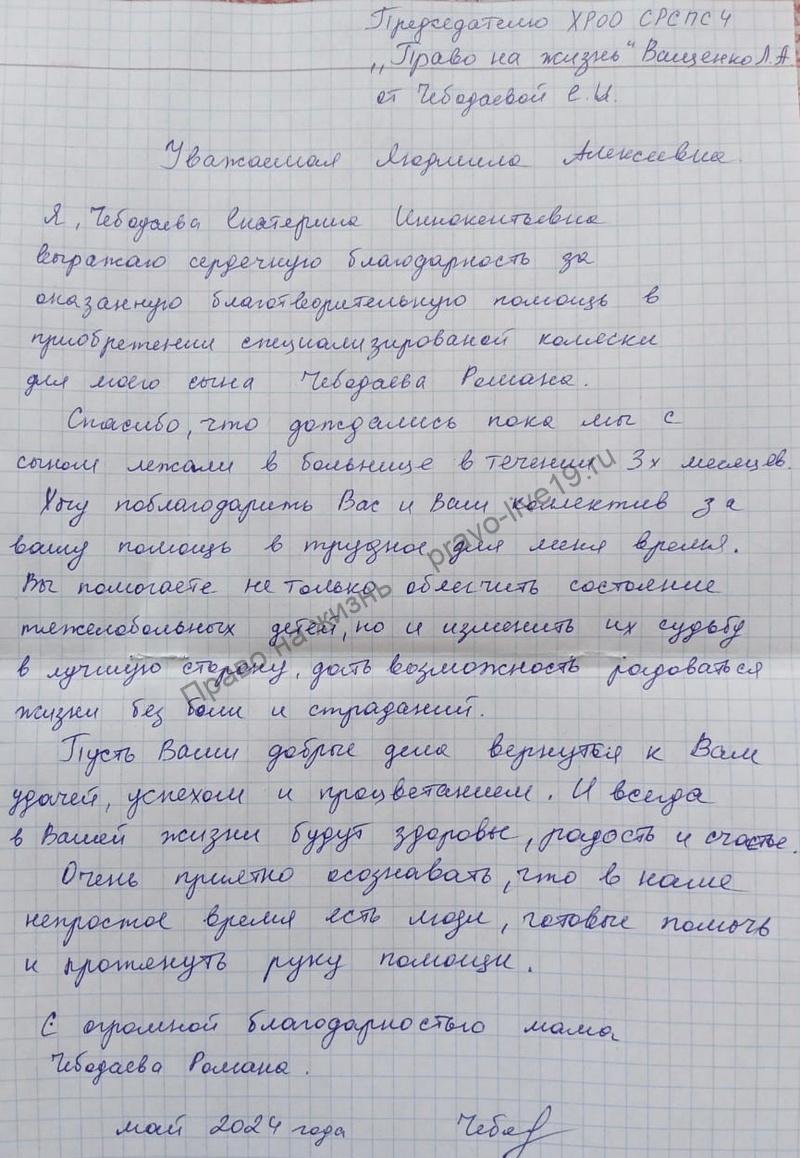 Председателю ХРОО СРСПСЧ
„Право на жизнь" Ващенко Л.А
от Чебодаевой Е.И.
Уважаемая Людмила Алексеевна.
Я, Чебодаева Екатерина Иннокентьевна
выражаю сердечную благодарность за
оказанную благотворительную помощь в
приобретении специализированой коляски
для моего сына Чебодаева Романа.
Спасибо, что дождались пока мы с
сыном лежали в больнице в течении 3х месяцев.
Хочу поблагодарить Вас и Ваш коллектив за
вашу помощь в трудное для меня время.
Вы помогаете не только облегчить состояние
тяжелобольных детей, но и изменить их судьбу
в лучшую сторону, дать возможность радоваться
жизни без боли и страданий.
Пусть Ваши добрые дела вернуться к Вам
удачей, успехом и процветанием. И всегда
в Вашей жизни будут здоровье, радость и счастье.
Очень приятно осознавать, что в наше
непростое время есть люди, готовые помочь
и протянуть руку помощи.
С огромной благодарностью мама
Чебодаева Романа.
май 2024 года Чебод
Право на жизнь pravo-live19.ru